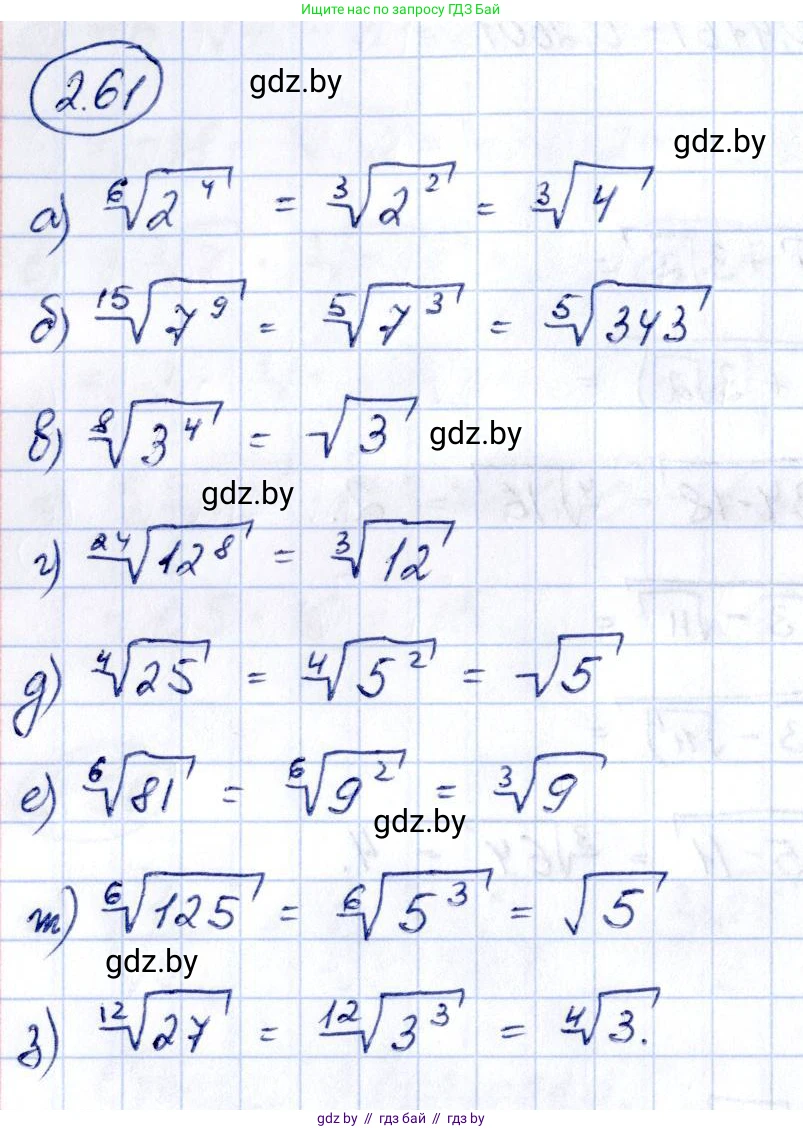 Ищите нас по запросу ГДЗ Бай
2.61
gdz.by
gdz.by
а) ⁶√2⁴ = ³√2² = ³√4
б) ¹⁵√7⁹ = ⁵√7³ = ⁵√343
в) ⁸√3⁴ = √3
gdz.by
gdz.by
г) ²⁴√12⁸ = ³√12
д) ⁴√25 = ⁴√5² = √5
е) ⁶√81 = ⁶√9² = ³√9
gdz.by
ж) ⁶√125 = ⁶√5³ = √5
gdz.by
з) ¹²√27 = ¹²√3³ = ⁴√3.
gdz.by // гдз бай // гдз by